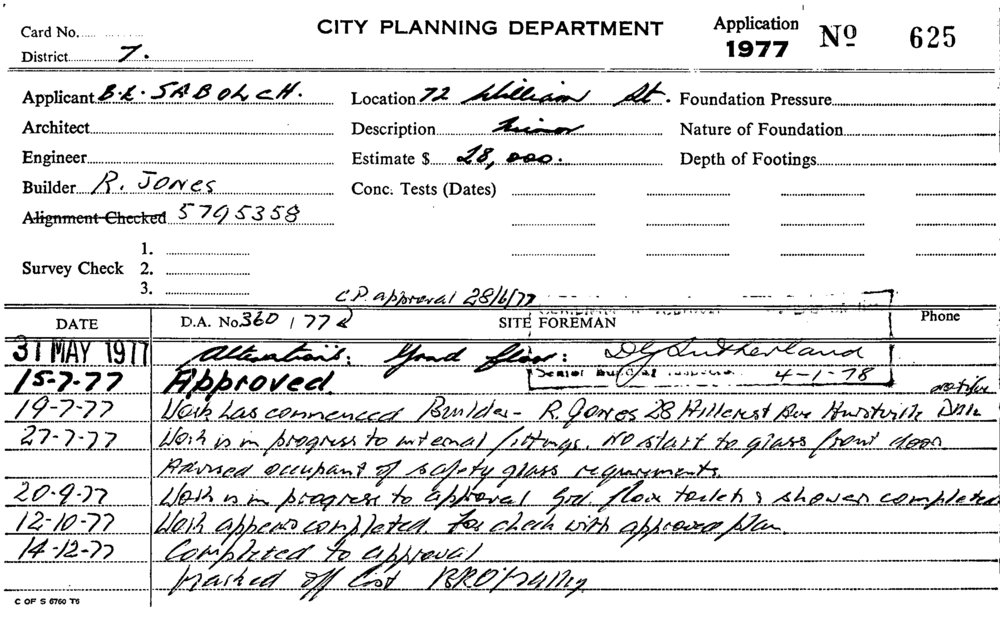 Card No.
CITY PLANNING DEPARTMENT
Application 1977 No 625
District 7.
Applicant B.L. SABOLCH.
Location 72 William St.
Foundation Pressure
Architect
Description Minor
Nature of Foundation
Engineer
Estimate $ 28,000.
Depth of Footings
Builder R. JONES
Conc. Tests (Dates)
Alignment Checked 5795358
Survey Check
1.
2.
3.
C.P. approval 28/6/77
DATE
D.A. No. 360 / 77
SITE FOREMAN
Phone
31 MAY 1977 Alterations: Ground floor: D G Sutherland
Senior Building Inspector 4-1-78
15-7-77 Approved.
19-7-77 Work has commenced Builder - R. Jones 28 Hillcrest Ave Hurstville
27-7-77 Work is in progress to internal fittings. No start to glass front door
Advised occupant of safety glass requirements.
20-9-77 Work is in progress to approval Grd. floor toilets & shower completed
12-10-77 Work appears completed. For check with approved plan
14-12-77 Completed to approval
Marked off List
C OF S 6760 T5